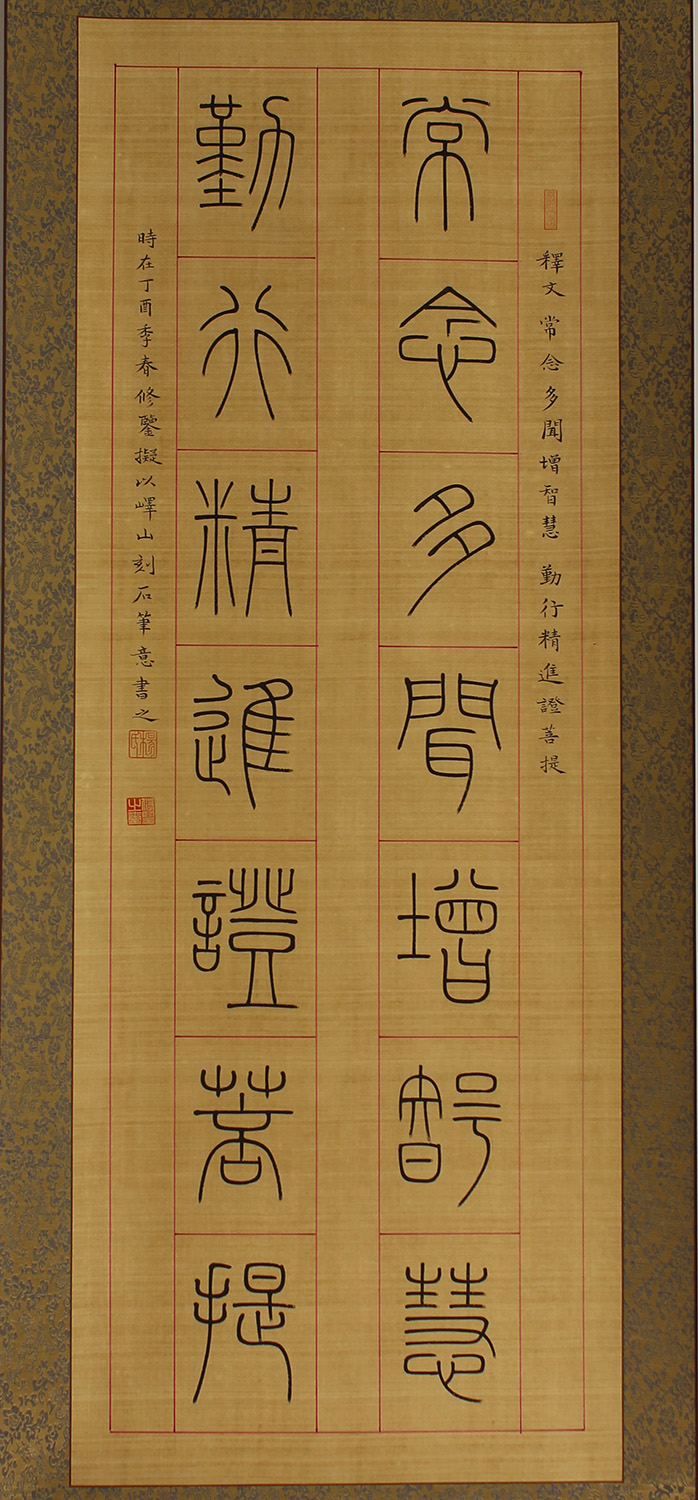 釋文 常念多聞增智慧 勤行精進證菩提
常念多聞增智慧
勤行精進證菩提
時在丁酉季春修鑒擬以嶧山刻石筆意書之